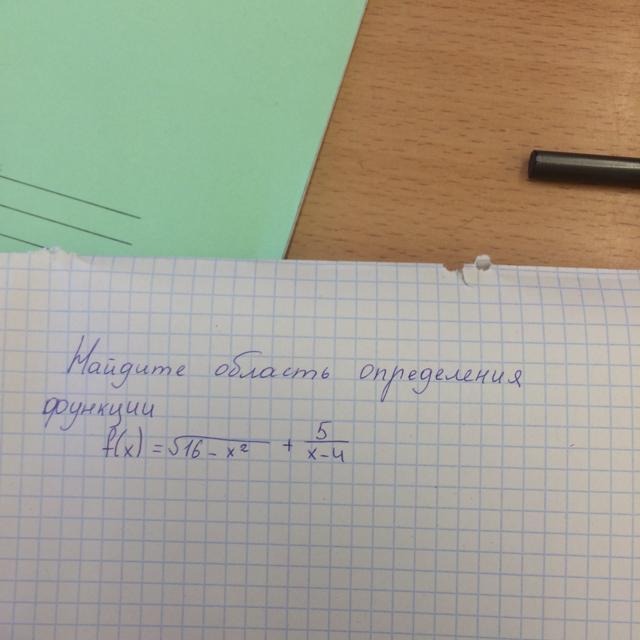 Найдите область определения
функции
f(x) = √16 - x² + 5/(x-4)